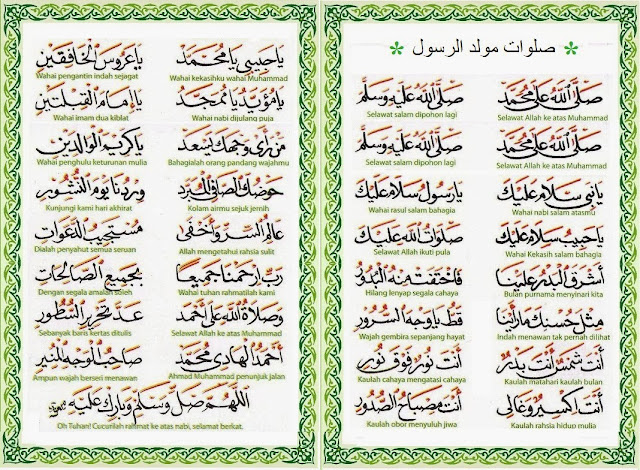 صلوات مولد الرسول
صلى الله على محمد
Selawat Allah ke atas Muhammad
صلى الله عليه وسلم
Selawat salam dipohon lagi
صلى الله على محمد
Selawat Allah ke atas Muhammad
صلى الله عليه وسلم
Selawat salam dipohon lagi
يا نبي سلام عليك
Wahai nabi salam atasmu
يا رسول سلام عليك
Wahai rasul salam bahagia
يا حبيب سلام عليك
Wahai Kekasih salam bahagia
صلوات الله عليك
Selawat Allah ikuti pula
أشرق البدر علينا
Bulan purnama menyinari kita
فاختفت منه البدور
Hilang lenyap segala cahaya
مثل حسنك ما رأينا
Indah menawan tak pernah dilihat
قط يا وجه السرور
Wajah gembira sepanjang hayat
أنت شمس أنت بدر
Kaulah matahari kaulah bulan
أنت نور فوق نور
Kaulah cahaya mengatasi cahaya
أنت إكسير وغالي
Kaulah rahsia hidup mulia
أنت مصباح الصدور
Kaulah obor menyuluh jiwa
يا حبيبي يا محمد
Wahai kekasihku wahai Muhammad
يا عروس الخافقين
Wahai pengantin indah sejagat
يا مؤيد يا ممجد
Wahai nabi dijulang puja
يا إمام القبلتين
Wahai imam dua kiblat
من رأى وجهك يسعد
Bahagialah orang pandang wajahmu
يا كريم الوالدين
Wahai penghulu keturunan mulia
حوضك الصافي المبرد
Kolam airmu sejuk jernih
وردنا يوم النشور
Kunjungi kami hari akhirat
عالم السر وأخفى
Allah mengetahui rahsia sulit
مستجيب الدعوات
Dialah penyahut semua seruan
رب ارحمنا جميعا
Wahai tuhan rahmatilah kami
بجميع الصالحات
Dengan segala amalan soleh
وصلاة الله على أحمد
Selawat Allah ke atas Muhammad
عد تحرير السطور
Sebanyak baris kertas ditulis
أحمد الهادي محمد
Ahmad Muhammad penunjuk jalan
صاحب الوجه المنير
Ampun wajah berseri menawan
اللهم صل وسلم وبارك عليه
Oh Tuhan! Cucurilah rahmat ke atas nabi, selamat berkat.